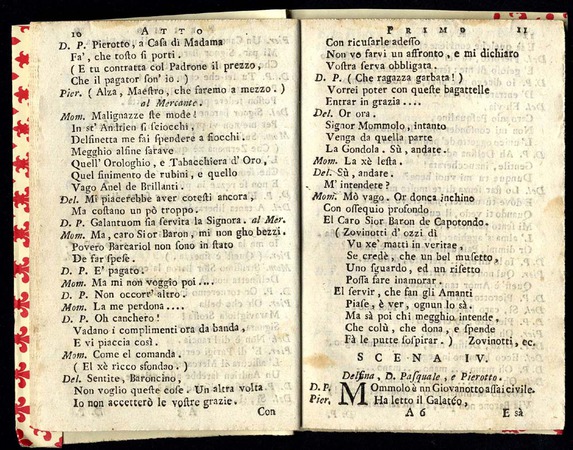 10 ATTO
D. P. Pierotto, a Casa di Madama
Fa', che tosto si porti.
( E tu contratta col Padrone il prezzo,
Che il pagator son' io. )
Pier. ( Alza, Maestro, che saremo a mezzo. )
al Mercante.
Mom. Malignazze ste mode!
In st' Andrien si sciocchi,
Delfinetta me fai spendere a fiocchi.
Megghio alfine sarave
Quell' Orologhio, e Tabacchiera d' Oro,
Quel finimento de rubini, e quello
Vago Anel de Brillanti.
Del. Mi piacerebbe aver cotesti ancora,
Ma costano un pò troppo.
D. P. Galantuom sia servita la Signora. al Mer.
Mom. Ma, caro Sior Baron, mi non gho bezzi.
Povero Barcariol non sono in stato
De far spese.
D. P. E' pagato.
Mom. Ma mi non voggio poi....
D. P. Non occorr' altro.
Mom. La me perdona....
D. P. Oh canchero!
Vadano i complimenti ora da banda,
E vi piaccia così.
Mom. Come el comanda.
( El xè ricco sfondao. )
Del. Sentite, Baroncino,
Non voglio queste cose. Un altra volta
Io non accetterò le vostre grazie.
Con
PRIMO 11
Con ricusarle adesso
Non vo farvi un affronto, e mi dichiaro
Vostra serva obbligata.
D. P. ( Che ragazza garbata! )
Vorrei poter con queste bagattelle
Entrar in grazia....
Del. Or ora.
Signor Mommolo, intanto
Venga da quella parte
La Gondola. Sù, andate.
Mom. La xè lesta.
Del. Sù, andate.
M' intendere?
Mom. Mò vago. Or donca inchino
Con ossequio profondo
El Caro Sior Baron de Capotondo.
( Zovinotti d' ozzi dì
Vu xe' matti in veritae,
Se credè, che un bel musetto,
Uno sguardo, ed un risetto
Possa fare inamorar.
El servir, che fan gli Amanti
Piase, è ver, ognun lo sà.
Ma sà poi chi megghio intende,
Che colù, che dona, e spende
Fà le putte sospirar. ) Zovinotti, ec.
SCENA IV.
Delfina, D. Pasquale, e Pierotto.
D. P. Mommolo è un Giovanotto assai civile.
Pier. Ha letto il Galatéo,
A 6 E sà